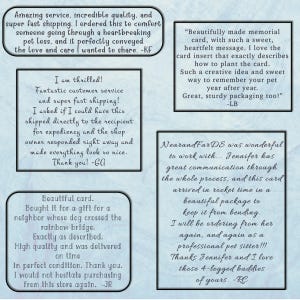 Amazing service, incredible quality, and
super fast shipping! I ordered this to comfort
someone going through a heartbreaking
pet loss, and it perfectly conveyed
the love and care I wanted to share. -KF
"Beautifully made memorial
card, with such a sweet,
heartfelt message. I love the
card insert that exactly describes
how to plant the card.
Such a creative idea and sweet
way to remember your pet
year after year.
Great, sturdy packaging too!"
-LB
I am thrilled!
Fantastic customer service
and super fast shipping!
I asked if I could have this
shipped directly to the recipient
for expediency and the shop
owner responded right away and
made everything look so nice.
Thank you!
NearandFarDS was wonderful
to work with... Jennifer has
great communication through
the whole process, and this card
arrived in record time in a
beautiful package to
keep it from bending.
I will be ordering from her
again, and again as a
professional pet sitter!!!
Thanks Jennifer and I love
those 4-legged buddies
of yours -RC
Beautiful card.
Bought it for a gift for a
neighbor whose dog crossed the
rainbow bridge.
Exactly as described.
High quality and was delivered
on time
in perfect condition. Thank you.
I would not hesitate purchasing
from this store again. -JR